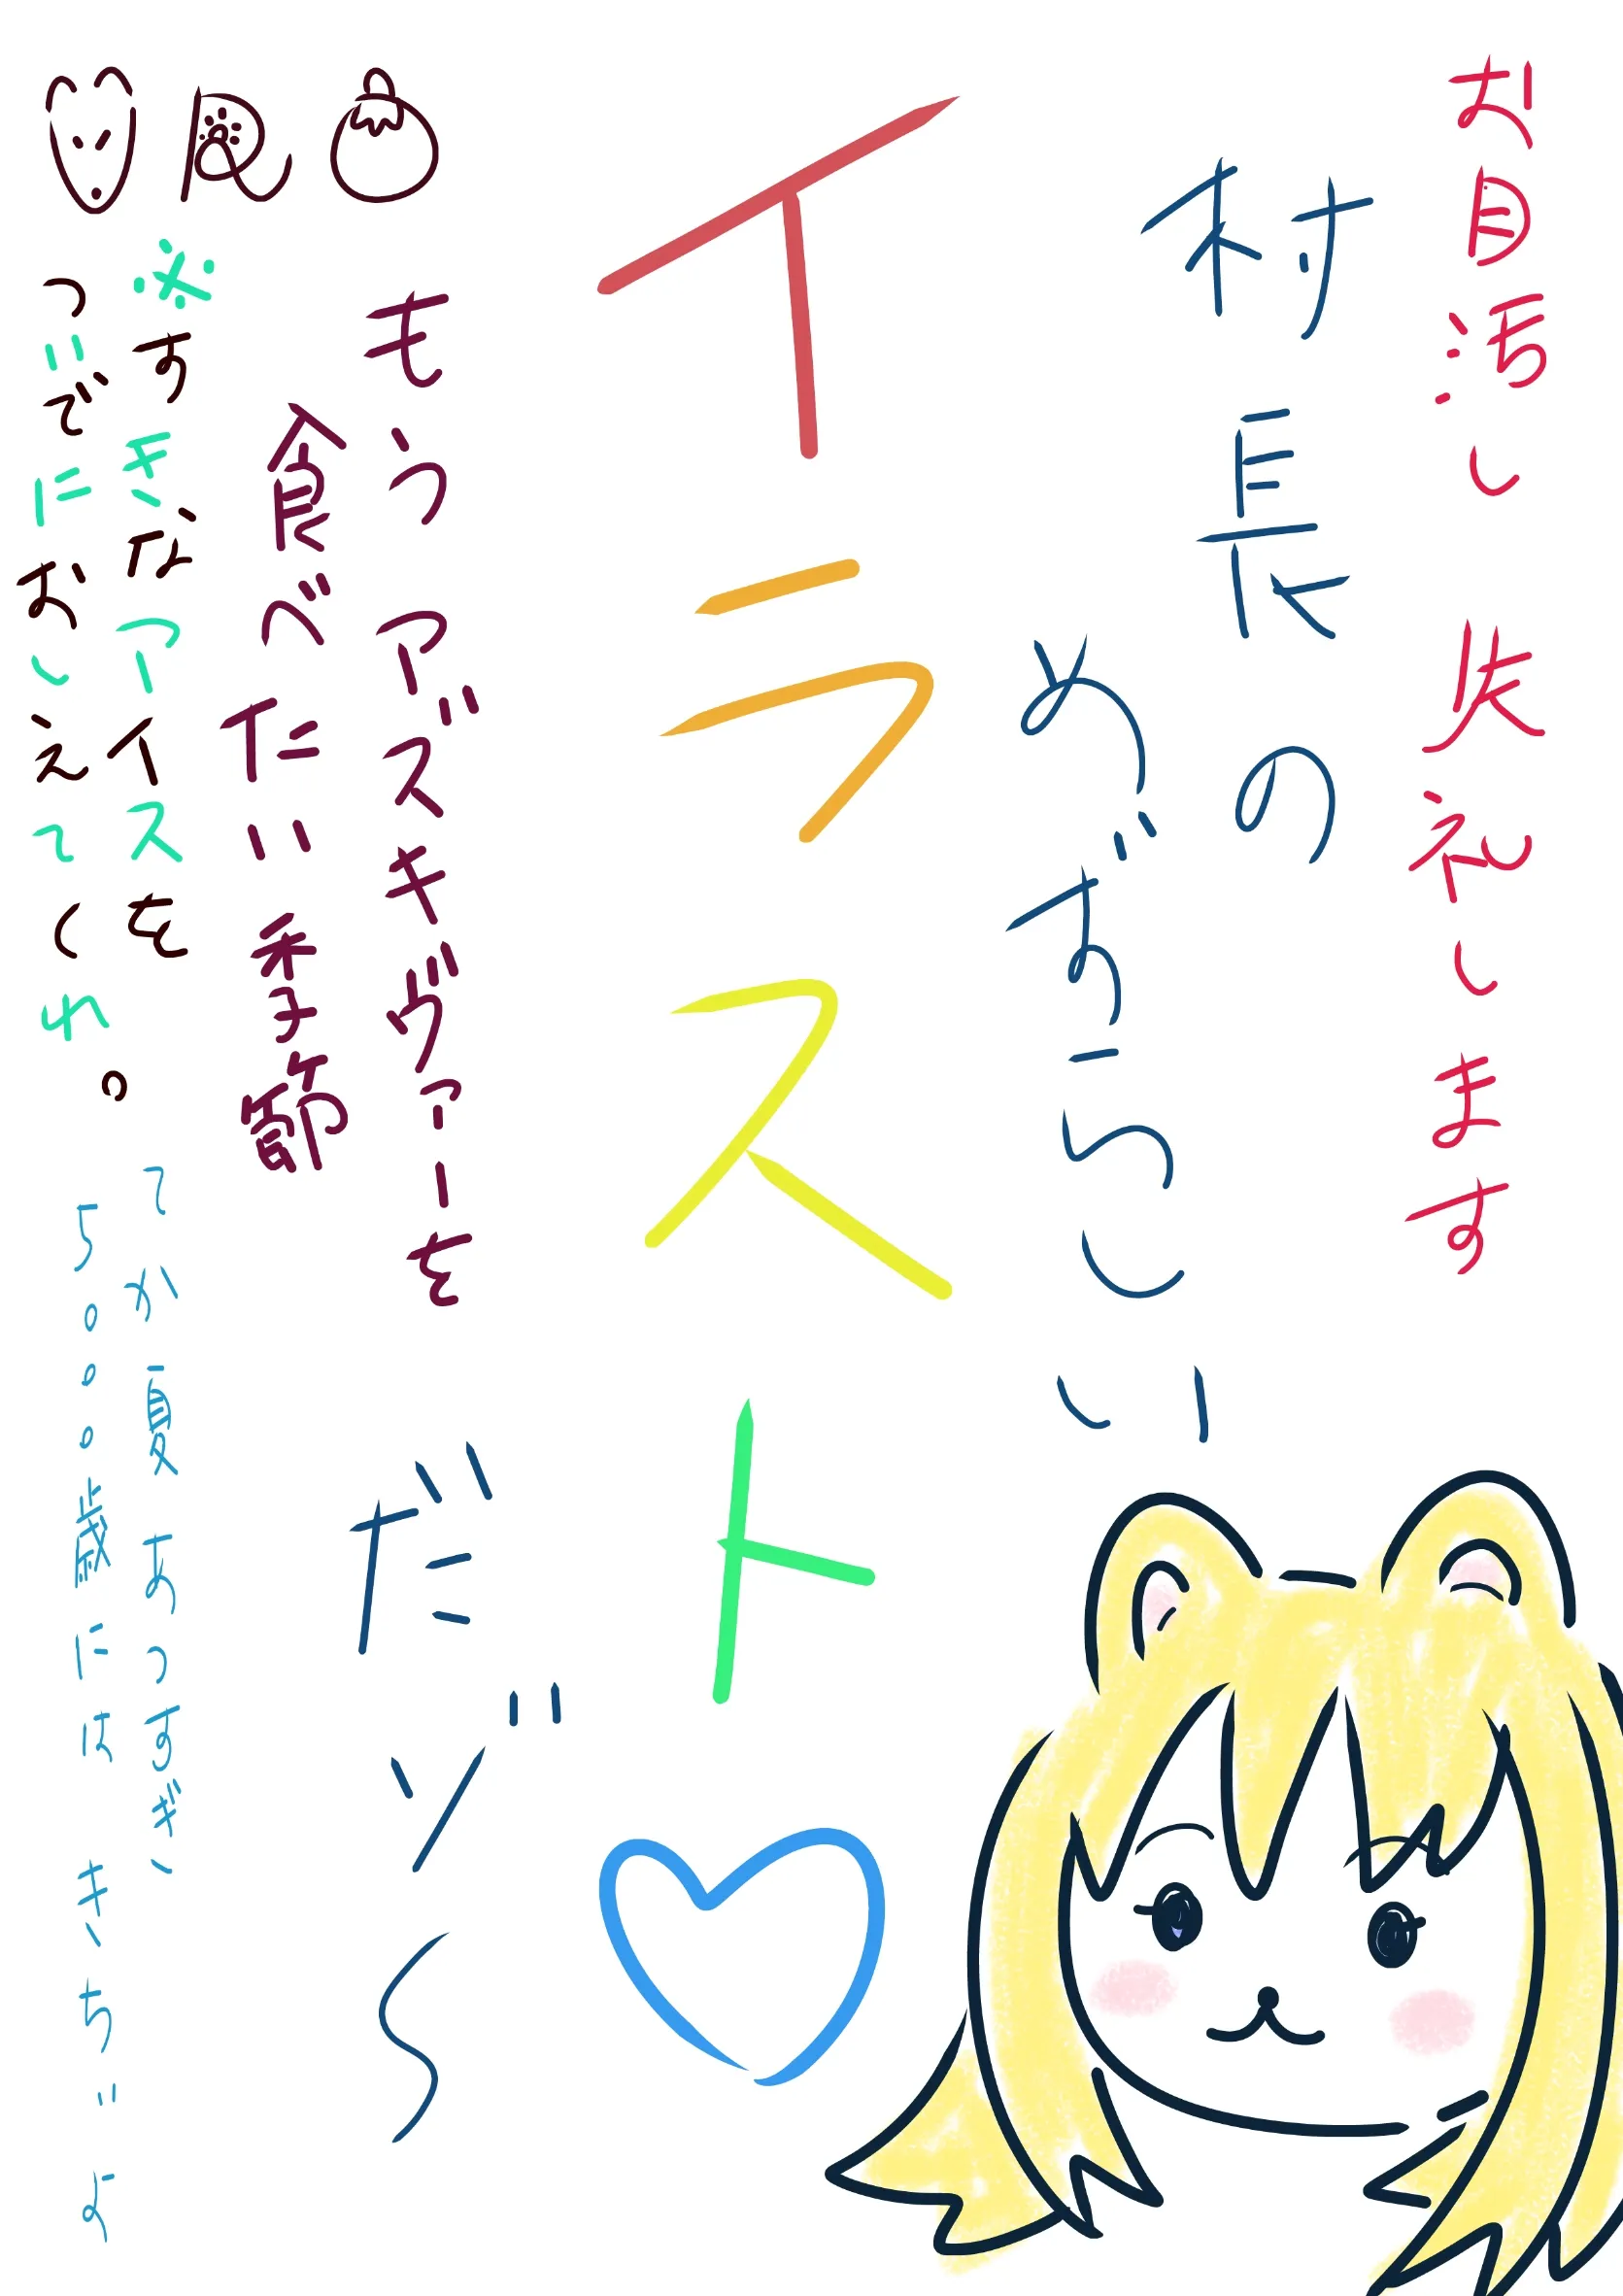 お目汚し 失礼します
村長の
めずらしい
イラスト♡
だゾ〜
もう アズキヴァーを
食べたい季節
※すきなアイスを
ついでにおしえてくれ。
てか夏 あつすぎん
5000歳には きちぃよ